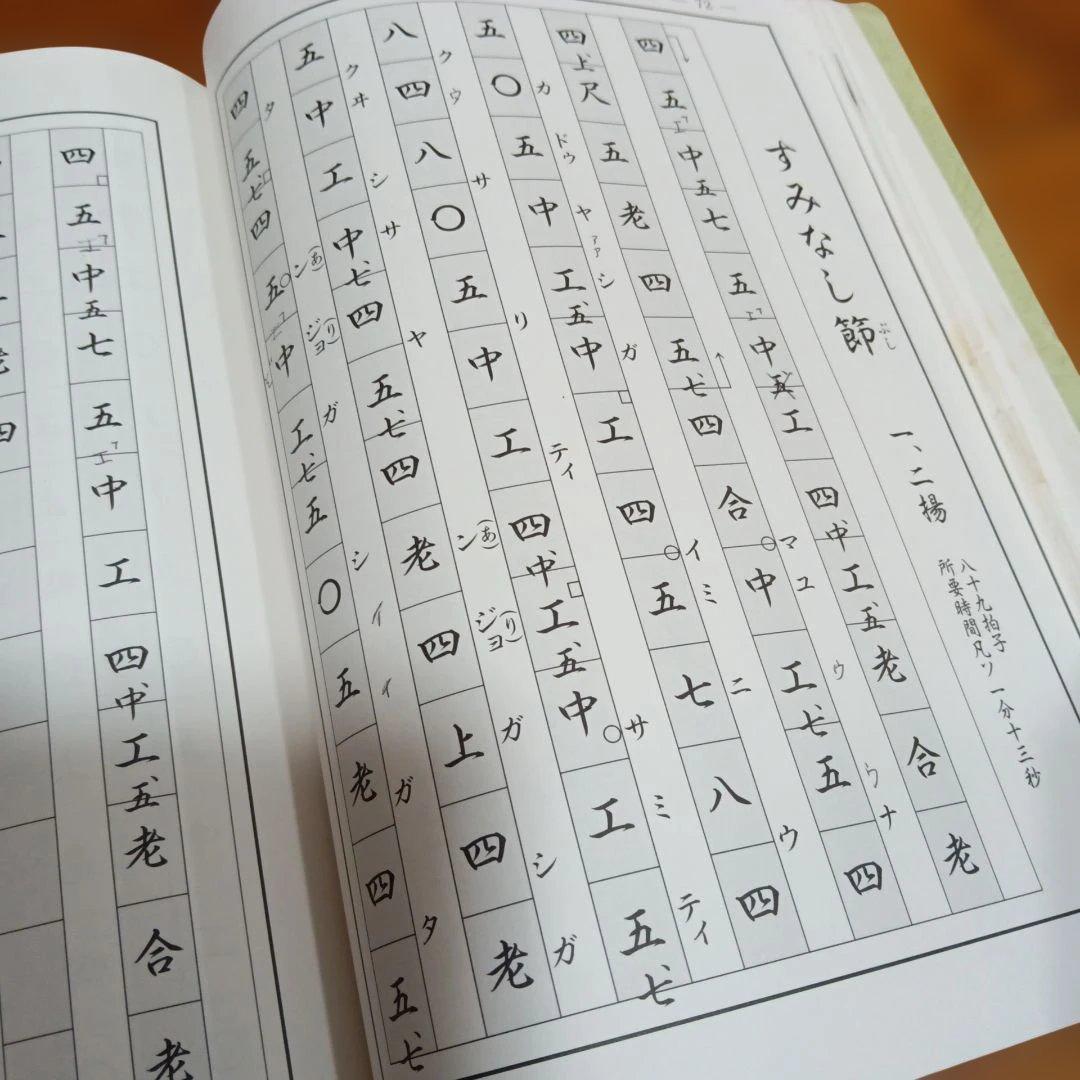 72
すみなし節
ぶし
一、二揚
八十九拍子
所要時間凡ソ一分十三秒
四五工中五七五工中五工四中工五老合老
四上尺五老四五七四合中工七五四
マユウウナ
五〇五中工五中工四五七八四
カドゥヤァアシガイミニウ
八四八〇五中工四中工五中工五七
クウサリティサミティ
五中工中七四五七四老四上四老
クヰシサヤン(あ)ジョ(り)ガシガ
四五七四五中工七五〇五老四五七
タン(あ)ジョ(り)ガシイイガタ
四五工中五七五工中工四中工五老合老